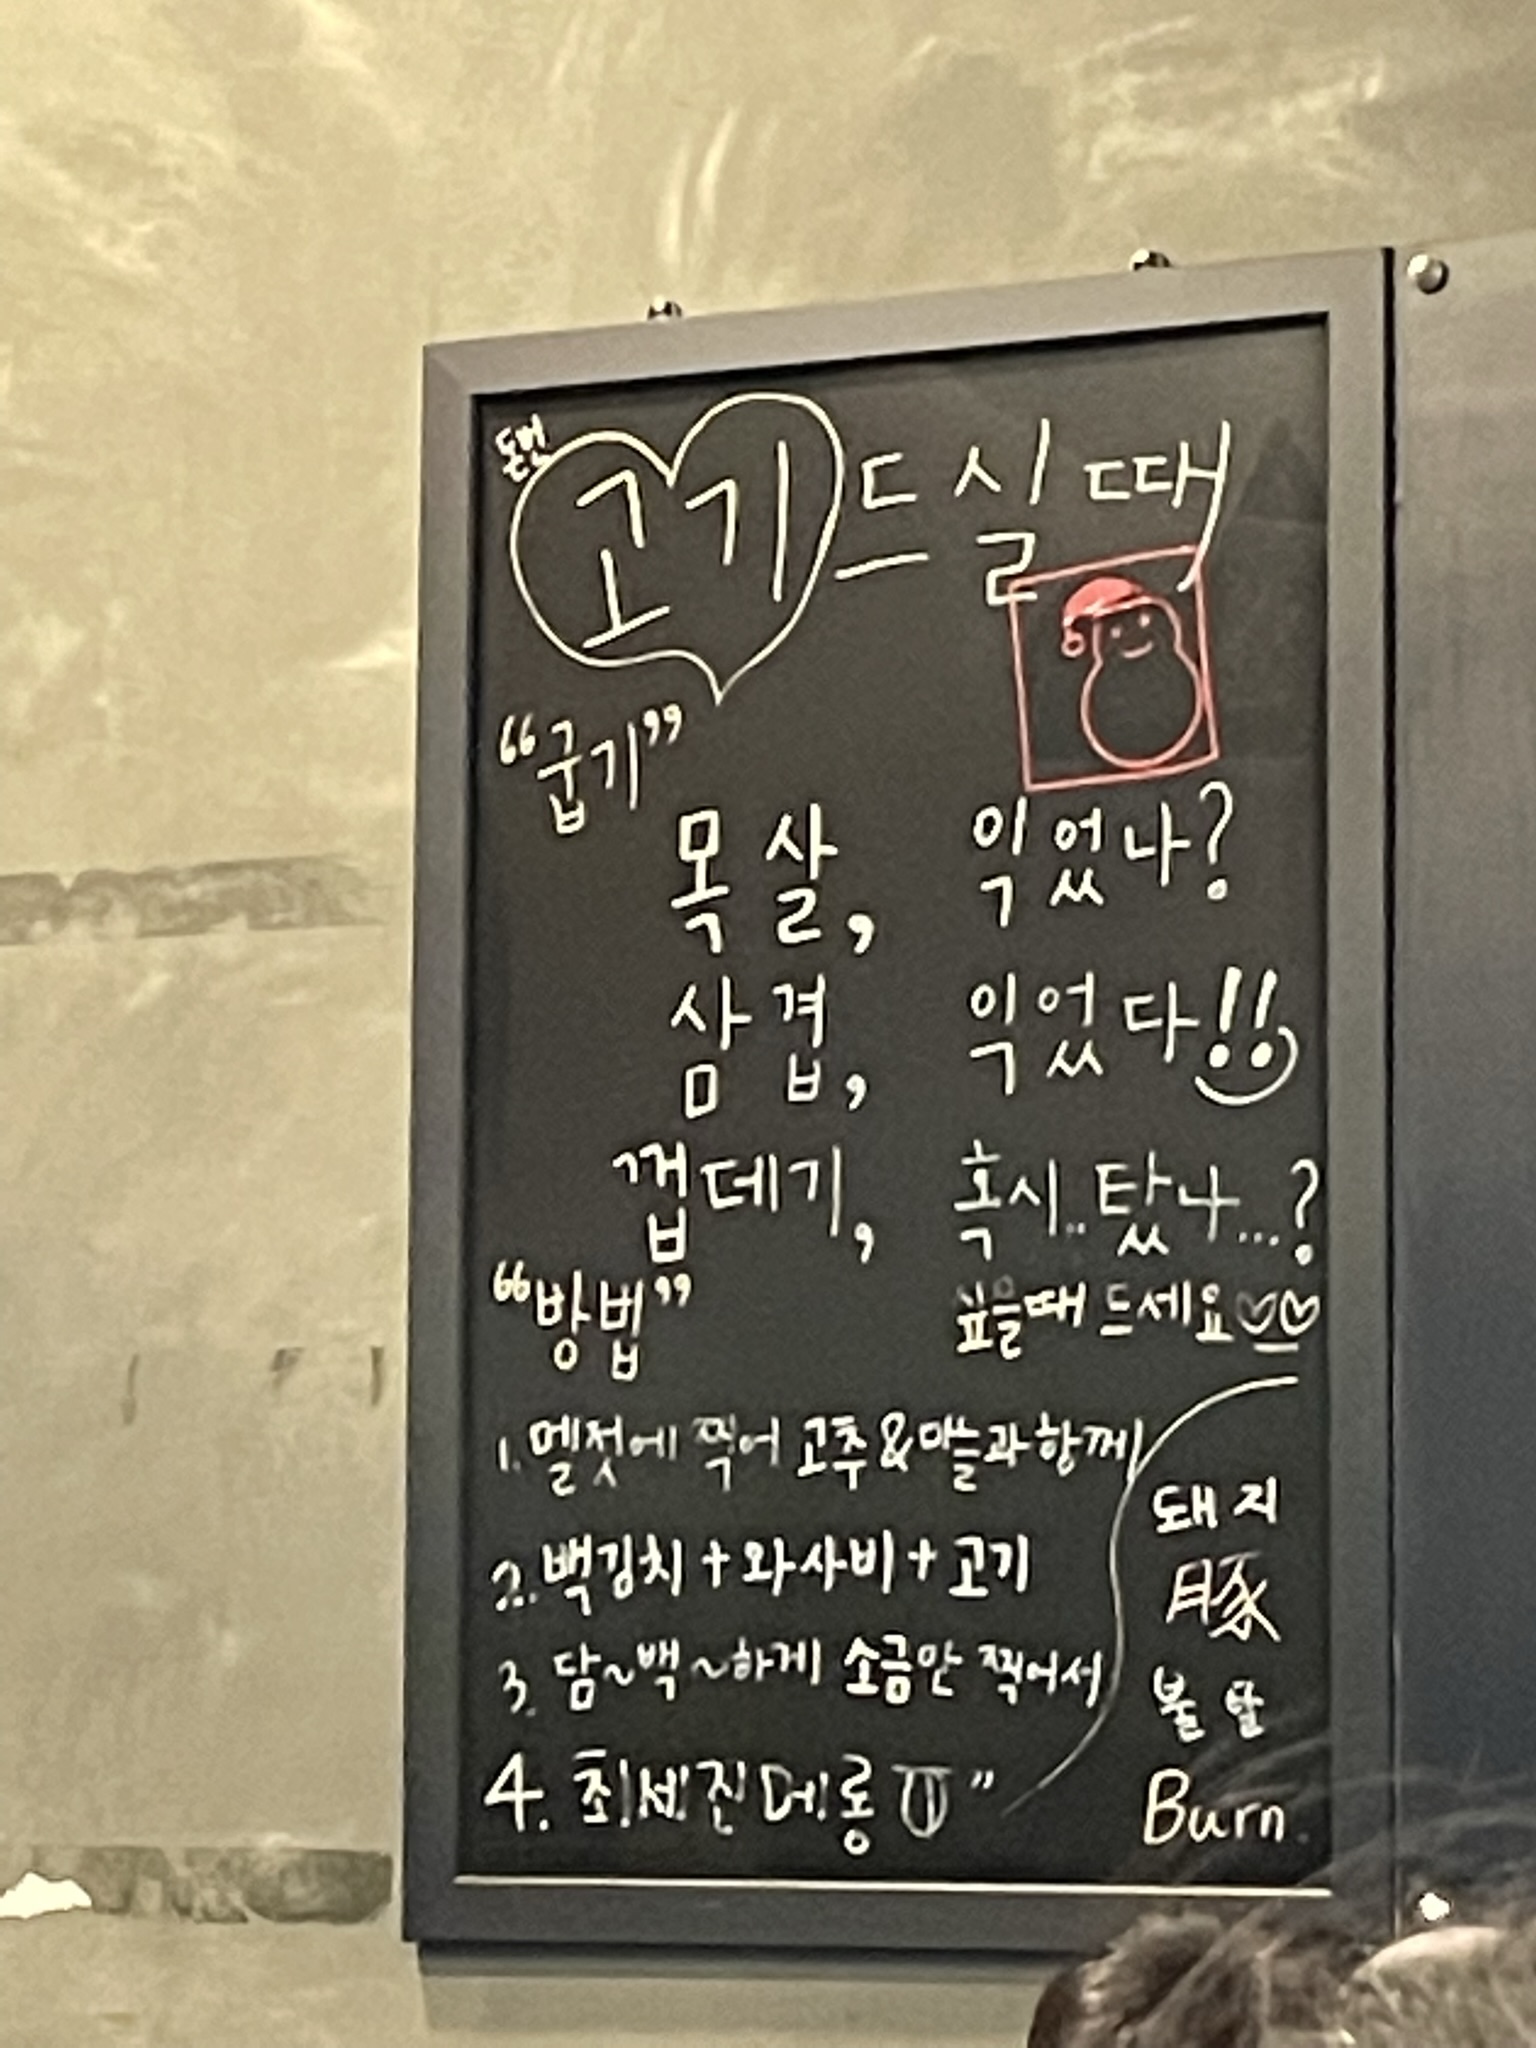 돈번
고기 드실때
“굽기”
목살, 익었나?
삼겹, 익었다!!
껍데기, 혹시.. 탔나...?
싶을때 드세요♡♡
“방법”
1. 멜젓에 찍어 고추&마늘과 함께
2. 백김치 + 와사비 + 고기
3. 담~백~하게 소금만 찍어서
4. 최세진메롱
돼지
豚
불탈
Burn.